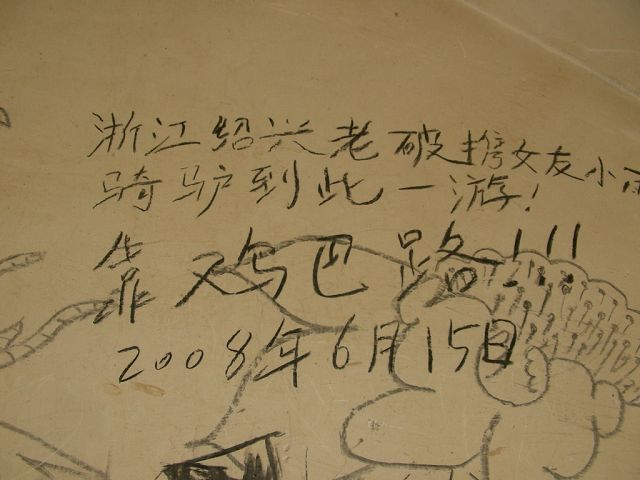 浙江绍兴老破携女友小雨
骑驴到此一游！
靠鸡巴路！！！
2008年6月15日